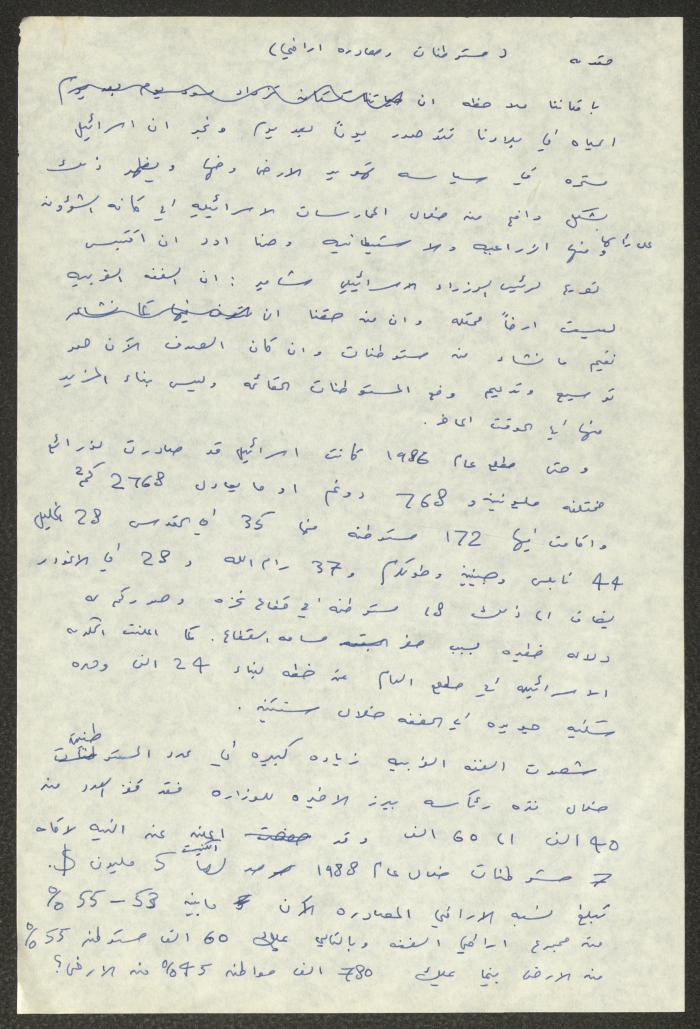 مقدمه ( مستوطنات ومصادره اراضي )
باقاتنا ملاحظه ان
الحياه في بلادنا تتدهور يوماً بعد يوم ونجد ان اسرائيل
مستمره في سياسه تهويد الارض وضمها ويظهر ذلك
بشكل واضح من خلال الممارسات الاسرائيليه في كافه الشؤون
على رأسها ومنها الزراعيه والاستيطانيه وهنا اود ان اقتبس
لرئيس الوزراء الاسرائيلي شامير : ان الضفه الغربيه
ليست ارضاً محتله وان من حقنا ان
نقيم ما نشاء من مستوطنات وان كان الهدف الآن هو
توسيع وتدعيم وضع المستوطنات القائمه وليس بناء المزيد
منها في الوقت الحاضر .
وحتى مطلع عام 1986 كانت اسرائيل قد صادرت لذرائع
مختلفه مليونين و 768 دونم او ما يعادل 2768 كم2
واقامت فيها 172 مستوطنه منها 35 في القدس 28 الخليل
44 نابلس وجنين وطولكرم و 37 رام الله و 28 في الاغوار
يضاف الى ذلك 18 مستوطنه في قطاع غزه وهو رقم له
دلاله خطيره بسبب صغر مساحه القطاع . كما اعلنت الحكومه
الاسرائيليه في مطلع العام عن خطه لبناء 24 الف وحده
سكنيه جديده في الضفه خلال سنتين .
شهدت الضفه الغربيه زياده كبيره في عدد المستوطنين
خلال فتره رئاسه بيرز الاخيره للوزاره فقد قفز العدد من
40 الف الى 60 الف وقد اعلن عن النيه لاقامه
7 مستوطنات خلال عام 1988 رصد لها 5 مليون $ .
تبلغ نسبه الاراضي المصادره الآن ما بين 53 – 55 %
من مجموع اراضي الضفه وبالتالي يملك 60 الف مستوطن 55 %
من الارض بينما يملك 780 الف مواطن 45 % من الارض ؟